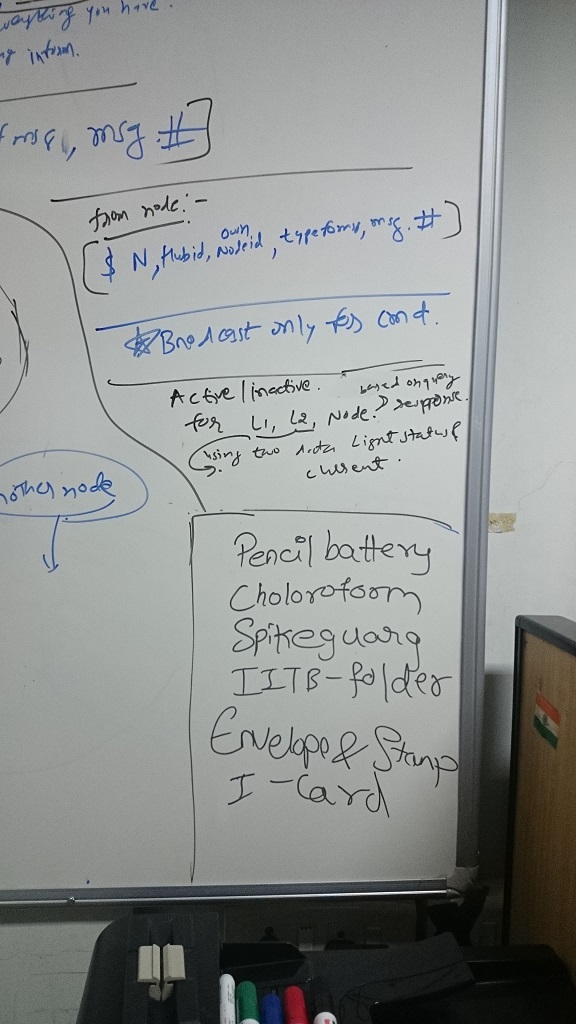 everything you have.
inform.
msg, msg.#]
from node:-
own
[$ N, Hubid, Nodeid, typeform, msg.#]
Brodcast only for cmd.
Active/inactive. based on query
for L1, L2, Node. response.
using two data Light status &
current.
nother node
Pencil battery
Choloroform
Spikeguarg
IITB-folder
Envelope & Stamp
I-Card